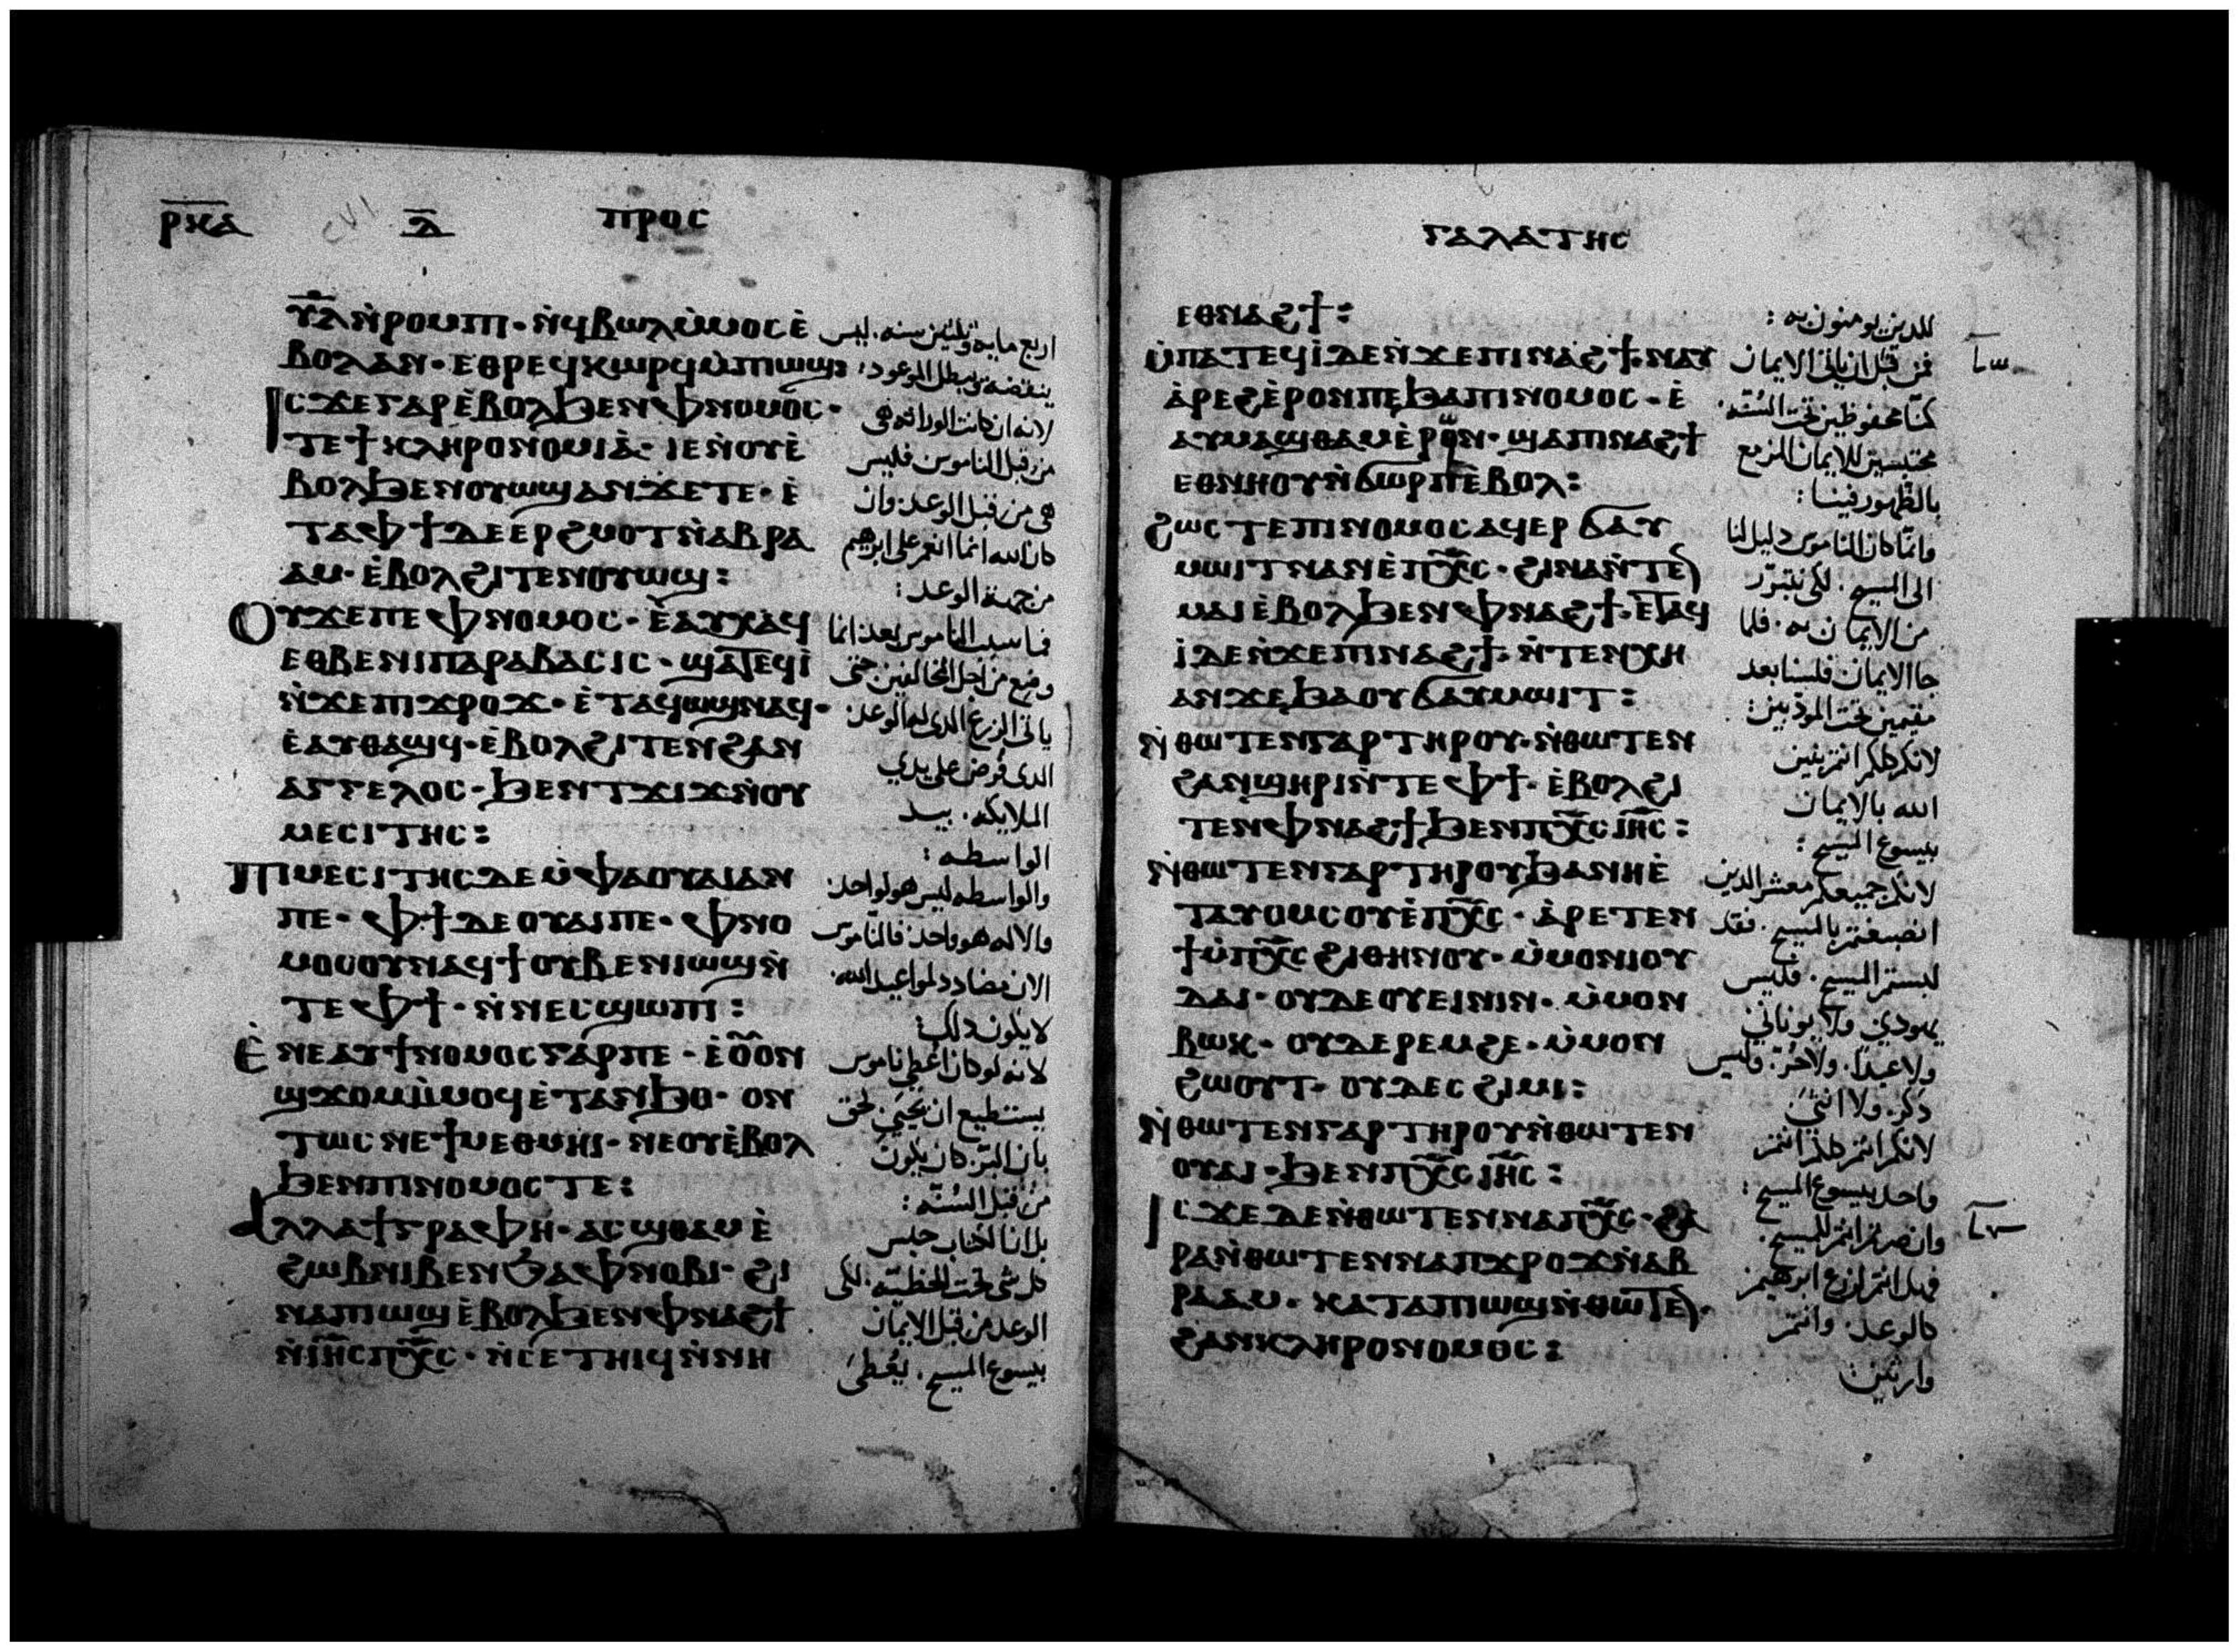 ⲣⲕⲁ ⲗ ⲡⲣⲟⲥ
ⲩ̅ⲗ̅ ⲛ̀ⲣⲟⲙⲡⲓ · ⲛ̀ϥⲃⲱⲗ ⲙ̀ⲙⲟⲥ ⲉ̀
ⲃⲟⲗ ⲁⲛ · ⲉⲑⲣⲉϥⲕⲱⲣϥ ⲙ̀ⲡⲓⲱϣ:
ⲓⲥϫⲉ ⲅⲁⲣ ⲉ̀ⲃⲟⲗϧⲉⲛ ⲫⲛⲟⲙⲟⲥ ·
ⲧⲉ ϯⲕⲗⲏⲣⲟⲛⲟⲙⲓⲁ̀ · ⲓⲉ ⲛ̀ⲟⲩⲉ̀
ⲃⲟⲗϧⲉⲛ ⲟⲩⲱϣ ⲁⲛ ϫⲉ ⲧⲉ · ⲉ̀
ⲧⲁ ⲫϯ ⲇⲉ ⲉⲣϩⲙⲟⲧ ⲛ̀ⲁⲃⲣⲁ
ⲁⲙ · ⲉ̀ⲃⲟⲗϩⲓⲧⲉⲛ ⲟⲩⲱϣ:
ⲟⲩ ϫⲉ ⲡⲉ ⲫⲛⲟⲙⲟⲥ · ⲉ̀ⲁⲩⲭⲁϥ
ⲉⲑⲃⲉ ⲛⲓⲡⲁⲣⲁⲃⲁⲥⲓⲥ · ϣⲁⲧⲉϥⲓ̀
ⲛ̀ϫⲉ ⲡⲓϫⲣⲟϫ · ⲉ̀ⲧⲁϥⲱϣ ⲛⲁϥ ·
ⲉ̀ⲁⲩⲑⲁϣϥ · ⲉ̀ⲃⲟⲗϩⲓⲧⲉⲛ ϩⲁⲛ
ⲁⲅⲅⲉⲗⲟⲥ · ϧⲉⲛ ⲧϫⲓϫ ⲛ̀ⲟⲩ
ⲙⲉⲥⲓⲧⲏⲥ:
ⲡⲓⲙⲉⲥⲓⲧⲏⲥ ⲇⲉ ⲙ̀ⲫⲁ ⲟⲩⲁⲓ ⲁⲛ
ⲡⲉ · ⲫϯ ⲇⲉ ⲟⲩⲁⲓ ⲡⲉ · ⲫⲛⲟ
ⲙⲟⲥ ⲟⲩⲛ ⲁϥϯ ⲟⲩⲃⲉ ⲛⲓⲱϣ ⲛ̀
ⲧⲉ ⲫϯ · ⲛ̀ⲛⲉⲥϣⲱⲡⲓ:
ⲉ̀ⲛⲉ ⲁⲩϯⲛⲟⲙⲟⲥ ⲅⲁⲣ ⲡⲉ · ⲉ̀ⲟⲟⲛ
ϣϫⲟⲙ ⲙ̀ⲙⲟϥ ⲉ̀ⲧⲁⲛϧⲟ · ⲟⲛ
ⲧⲱⲥ ⲛⲉ ϯⲙⲉⲑⲙⲏⲓ · ⲛⲉ ⲟⲩⲉ̀ⲃⲟⲗ
ϧⲉⲛ ⲡⲓⲛⲟⲙⲟⲥ ⲧⲉ:
ⲁⲗⲗⲁ ϯⲅⲣⲁⲫⲏ · ⲁⲥϣⲑⲁⲙ ⲉ̀
ϩⲱⲃ ⲛⲓⲃⲉⲛ ϧⲁ ⲫⲛⲟⲃⲓ · ϩⲓ
ⲛⲁ ⲡⲓⲱϣ ⲉ̀ⲃⲟⲗϧⲉⲛ ⲫⲛⲁϩϯ
ⲛ̀ⲓⲏ̅ⲥ̅ ⲡⲭ̅ⲥ̅ · ⲛ̀ⲥⲉⲧⲏⲓϥ ⲛ̀ⲛⲏ
اربع مايه وثلثين سنه. ليس
ينقضه ويبطل الموعود:
لانه ان كانت الوراثه هي
من قبل الناموس فليس
هي من قبل الوعد. وان
كان الله انما انعم على ابرهيم
من جهة الوعد:
فما سبب الناموس بعد انما
وضع من اجل المخالفين. حتى
ياتى الزرع الدى له الوعد.
الدى فرض على يدي
الملايكه. بيد
الواسطه:
والواسطه ليس هو لواحد.
والاله هو واحد. فالناموس
الان مضادد لمواعيد الله.
لا يكون دلك:
لانه لو كان اعطي ناموس
يستطيع ان يحيي. لحق
بان البر كان يكون
من قبل السنة:
بل انا الكتاب حبس
كل شى تحت الخطية. لكى
الوعد من قبل الايمان
بيسوع المسيح. يعطى
ⲅⲁⲗⲁⲧⲏⲥ
ⲉⲑⲛⲁϩϯ:
ⲙ̀ⲡⲁⲧⲉϥⲓ̀ ⲇⲉ ⲛ̀ϫⲉ ⲡⲓⲛⲁϩϯ · ⲛⲁⲩ
ⲁ̀ⲣⲉϩ ⲉ̀ⲣⲟⲛ ⲡⲉ ϧⲁ ⲡⲓⲛⲟⲙⲟⲥ · ⲉ̀
ⲁⲩⲙⲁϣⲑⲁⲙ ⲉ̀ⲣⲱⲟⲛ · ϣⲁ ⲡⲓⲛⲁϩϯ
ⲉⲑⲛⲏⲟⲩ ⲛ̀ϭⲱⲣⲡ ⲉ̀ⲃⲟⲗ:
ϩⲱⲥⲧⲉ ⲡⲓⲛⲟⲙⲟⲥ ⲁϥⲉⲣ ϭⲁⲩ
ⲙⲱⲓⲧ ⲛⲁⲛ ⲉ̀ⲡⲭ̅ⲥ̅ · ϩⲓⲛⲁ ⲛ̀ⲧⲉⲛ
ⲙⲁⲓ ⲉ̀ⲃⲟⲗϧⲉⲛ ⲫⲛⲁϩϯ · ⲉ̀ⲧⲁϥ
ⲓ̀ ⲇⲉ ⲛ̀ϫⲉ ⲡⲓⲛⲁϩϯ · ⲛ̀ⲧⲉⲛⲭⲏ
ⲁⲛ ϫⲉ ϧⲁ ⲟⲩϭⲁⲩⲙⲱⲓⲧ:
ⲛ̀ⲑⲱⲧⲉⲛ ⲅⲁⲣ ⲧⲏⲣⲟⲩ · ⲛ̀ⲑⲱⲧⲉⲛ
ϩⲁⲛϣⲏⲣⲓ ⲛ̀ⲧⲉ ⲫϯ · ⲉ̀ⲃⲟⲗϩⲓ
ⲧⲉⲛ ⲫⲛⲁϩϯ ϧⲉⲛ ⲡⲭ̅ⲥ̅ ⲓⲏ̅ⲥ̅:
ⲛ̀ⲑⲱⲧⲉⲛ ⲅⲁⲣ ⲧⲏⲣⲟⲩ ϧⲁ ⲛⲏ ⲉ̀
ⲧⲁⲩⲟⲙⲥⲟⲩ ⲉ̀ⲡⲭ̅ⲥ̅ · ⲁ̀ⲣⲉⲧⲉⲛ
ϯ ⲙ̀ⲡⲭ̅ⲥ̅ ϩⲓⲑⲏⲛⲟⲩ · ⲙ̀ⲙⲟⲛ ⲓⲟⲩ
ⲇⲁⲓ · ⲟⲩⲇⲉ ⲟⲩⲉⲓⲛⲓⲛ · ⲙ̀ⲙⲟⲛ
ⲃⲱⲕ · ⲟⲩⲇⲉ ⲣⲉⲙϩⲉ · ⲙ̀ⲙⲟⲛ
ϩⲱⲟⲩⲧ · ⲟⲩⲇⲉ ⲥϩⲓⲙⲓ:
ⲛ̀ⲑⲱⲧⲉⲛ ⲅⲁⲣ ⲧⲏⲣⲟⲩ ⲛ̀ⲑⲱⲧⲉⲛ
ⲟⲩⲁⲓ · ϧⲉⲛ ⲡⲭ̅ⲥ̅ ⲓⲏ̅ⲥ̅:
ⲓⲥϫⲉ ⲇⲉ ⲛ̀ⲑⲱⲧⲉⲛ ⲛⲁ ⲡⲭ̅ⲥ̅ · ϩⲁ
ⲣⲁ ⲛ̀ⲑⲱⲧⲉⲛ ⲛⲁ ⲡϫⲣⲟϫ ⲛ̀ⲁⲃ
ⲣⲁⲁⲙ · ⲕⲁⲧⲁ ⲡⲓⲱϣ ⲛ̀ⲑⲱⲧⲉⲛ ·
ϩⲁⲛⲕⲗⲏⲣⲟⲛⲟⲙⲟⲥ:
للدين يومنون به:
فمن قبل ان ياتى الايمان
كنا محفوظين تحت السنة.
محتبسين للايمان المزمع
بالظهور فينا:
وانما كان الناموس دليل لنا
الى المسيح. لكى نتبرر
من الايمان به. فلما
جا الايمان فلسنا بعد
مقيمين تحت المودبين:
لانكم كلكم انتم بنين
الله بالايمان
بيسوع المسيح:
لانكم جميعكم معشر الدين
انصبغتم بالمسيح. فقد
لبستم المسيح. فليس
يهودي ولا يوناني
ولا عبدا. ولا حر. وليس
دكر. ولا انثى
لانكم انتم كلكم انتم
واحد بيسوع المسيح:
وان صرتم انتم للمسيح.
فهل انتم لزرع ابرهيم
كالوعد. وانتم
وارثين